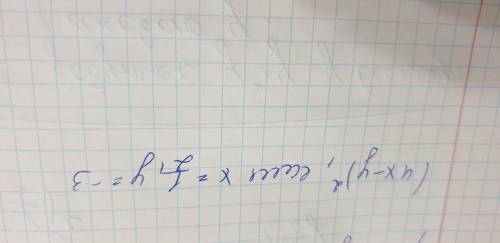 (4x-y)², если x = 1/2, y = -3